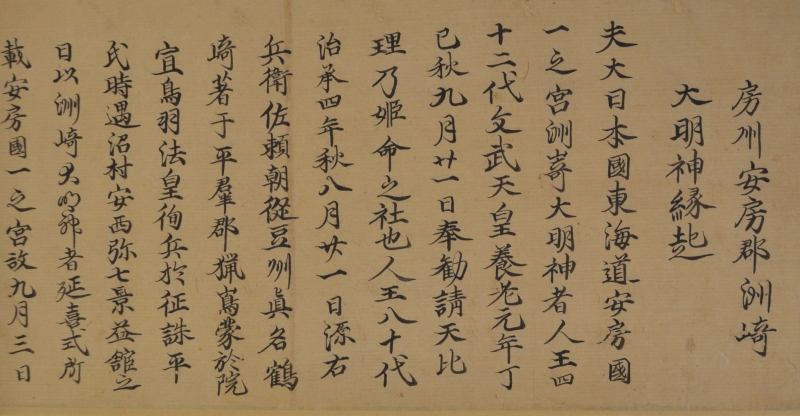 房州安房郡洲崎
大明神縁起
夫大日本國東海道安房國
一之宮洲嵜大明神者人王四
十二代文武天皇養老元年丁
巳秋九月廿一日奉勧請天比
理乃姫命之社也人王八十代
治承四年秋八月廿一日源右
兵衛佐頼朝從豆州真名鶴
崎著于平羣郡猟嶌蒙於院
宣鳥羽法皇徇兵於征誅平
氏時遇沼村安西弥七景益舘之
日以洲崎大明神者延喜式所
載安房國一之宮故九月三日